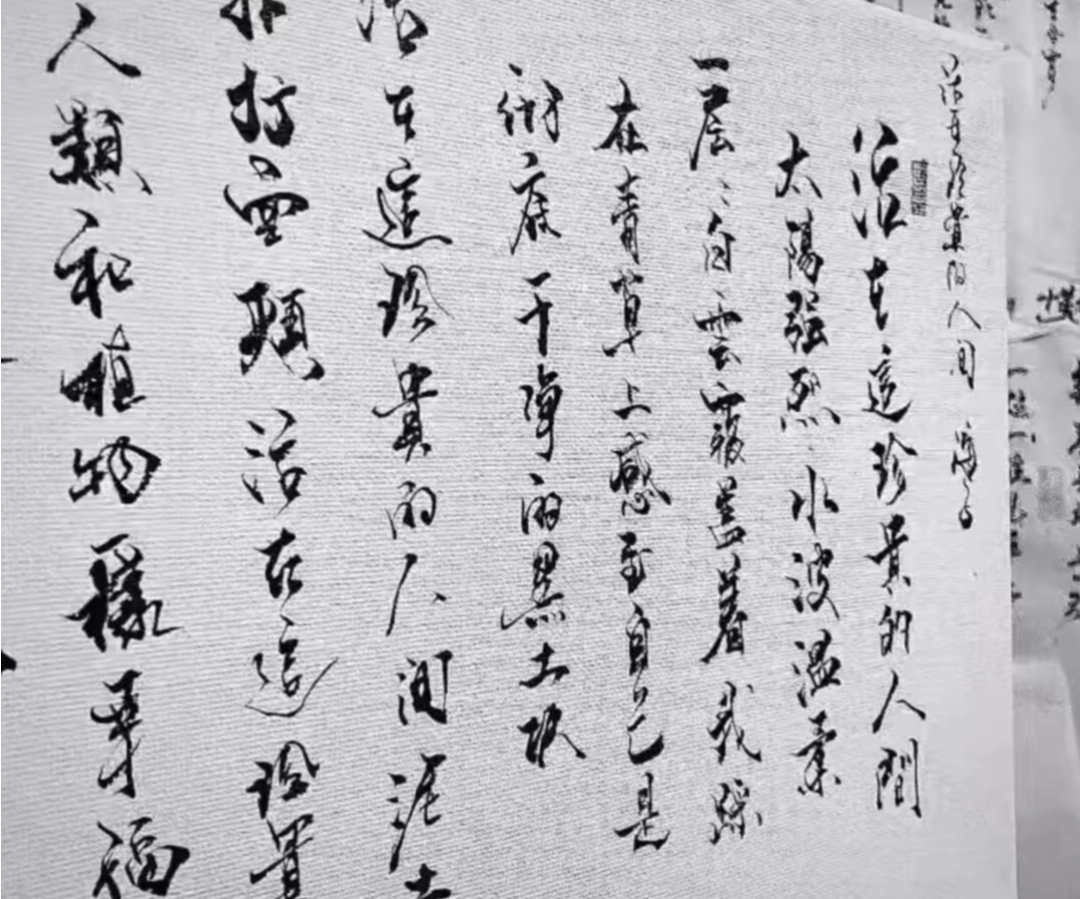 活在珍貴的人间 海子
活在這珍貴的人間
太陽强烈水波温柔
一层〻白雲覆蓋着我踩
在青草上感到自己是
彻底干净的黑土块
活在這珍貴的人间泥土
扑打面頰活在這珍貴
人類和植物一樣幸福